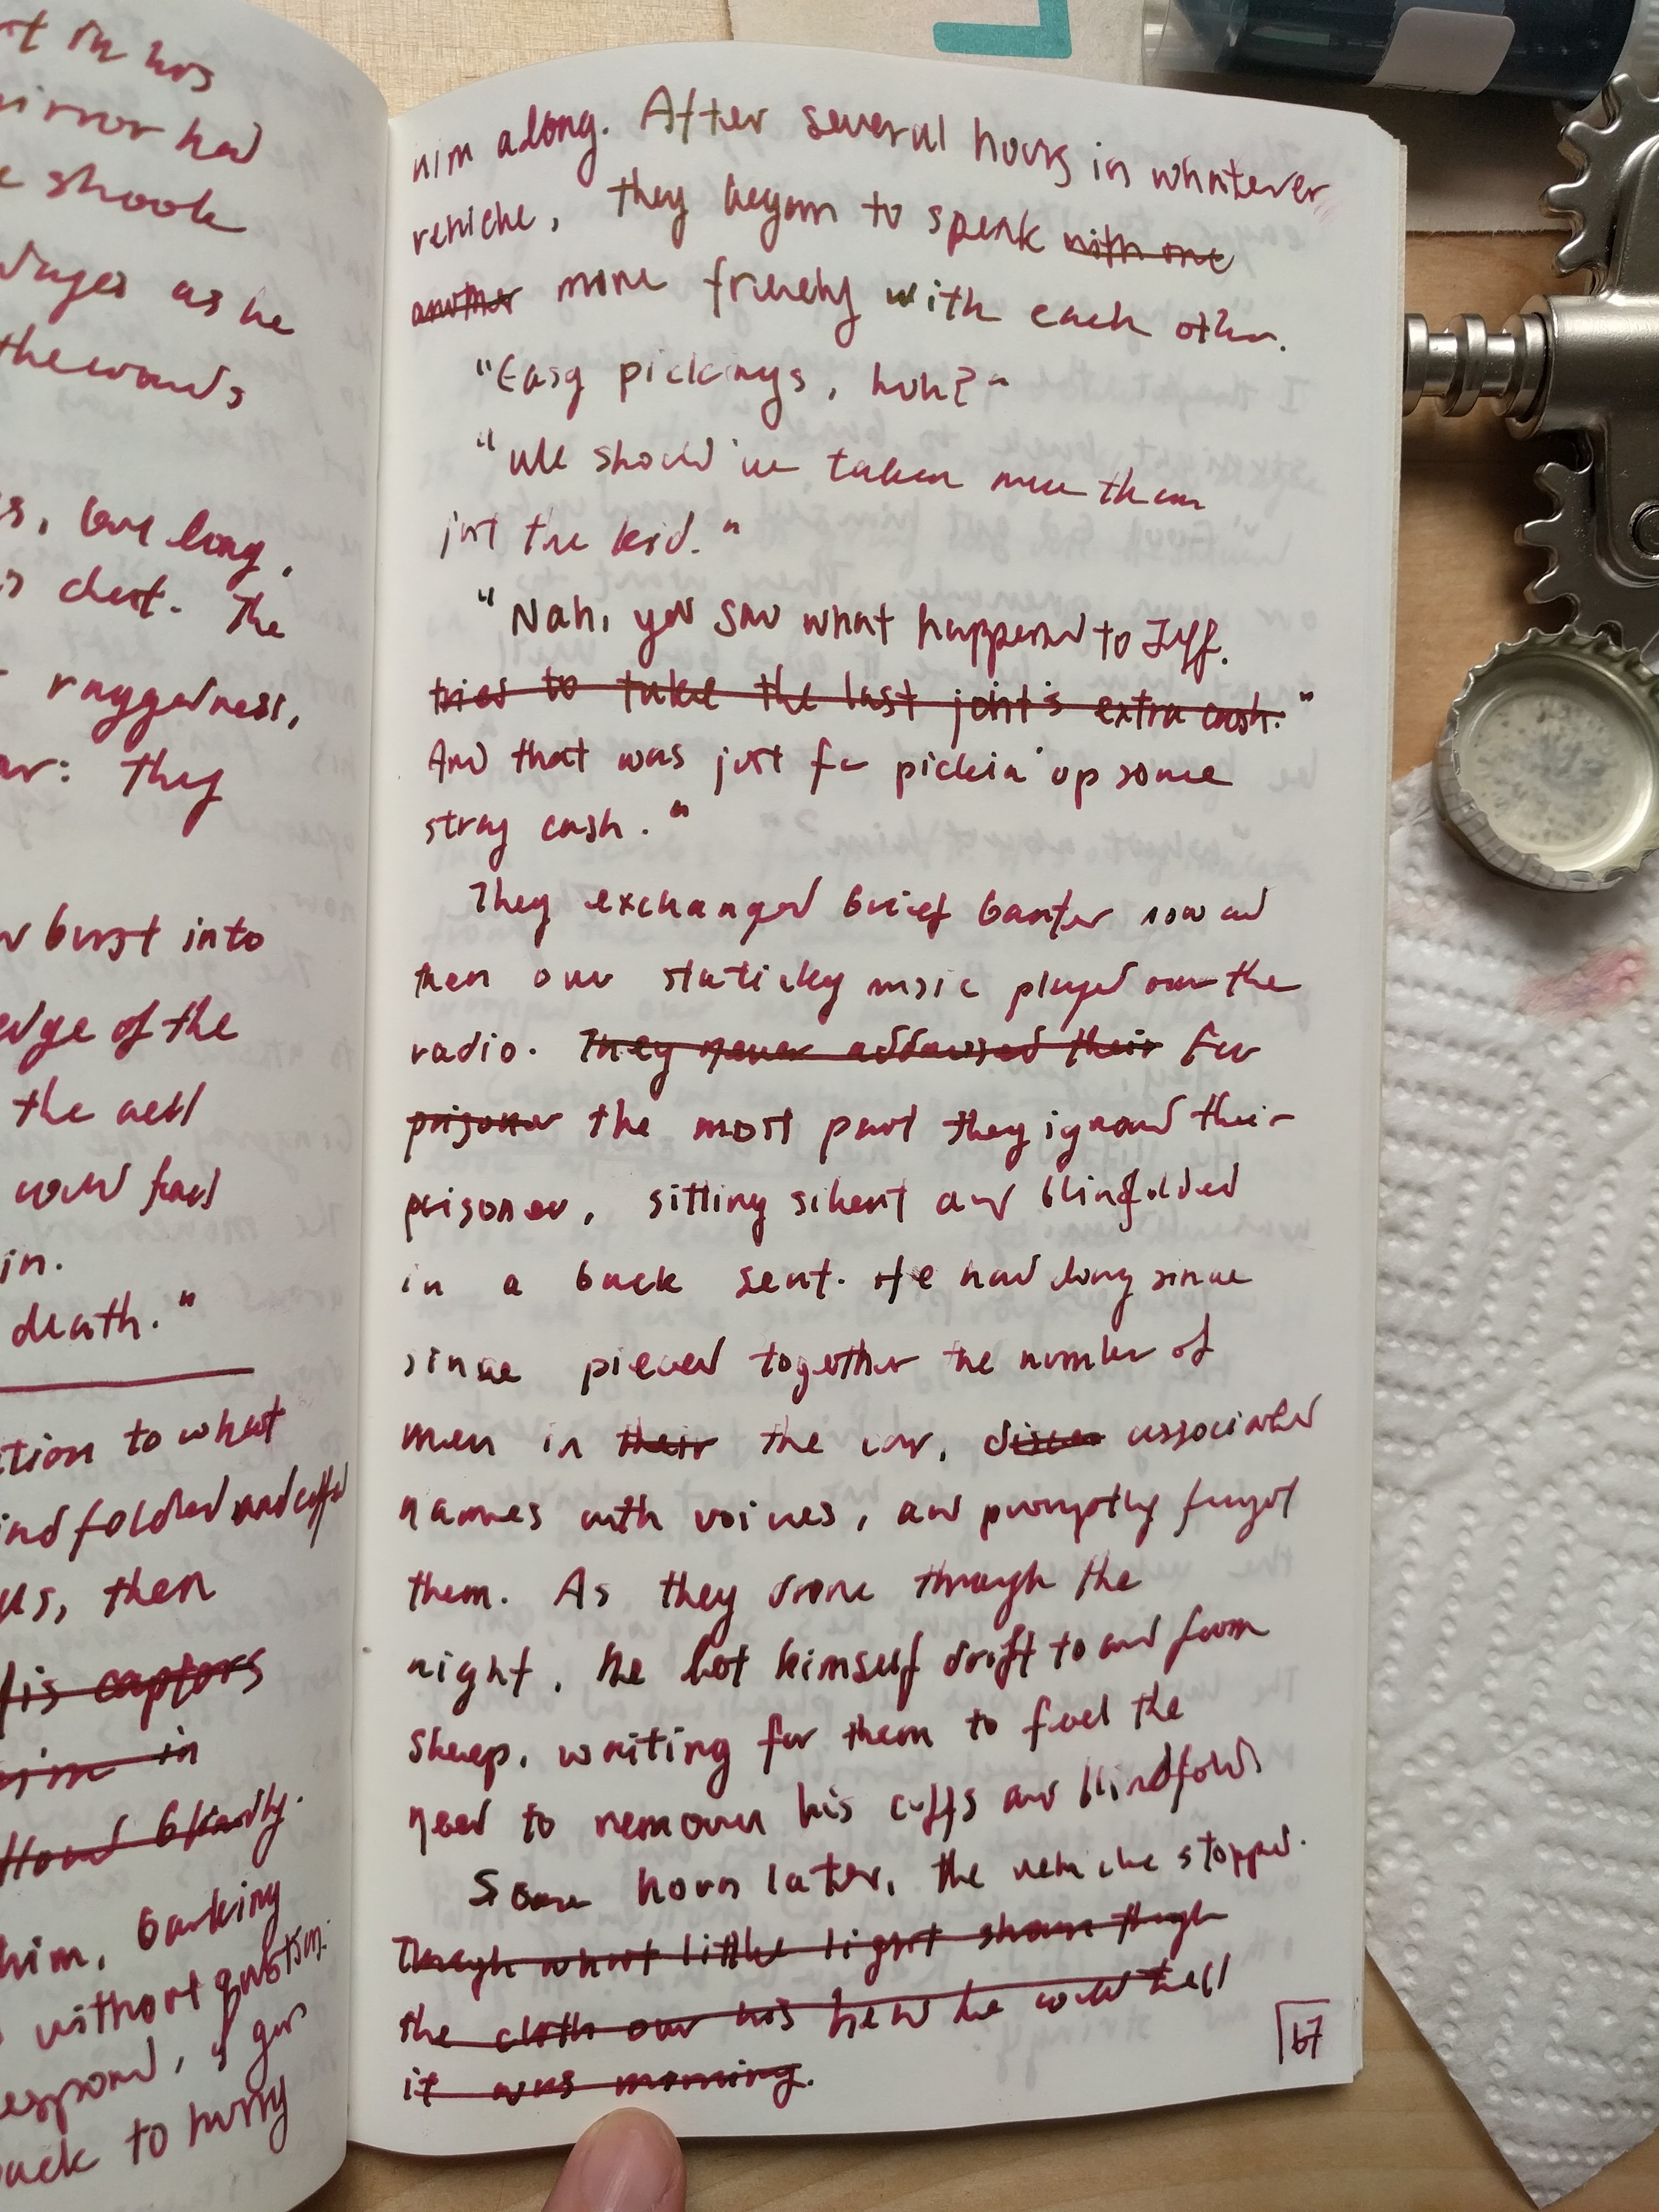 t in his
mirror had
e shook
as he
the words
s, love long,
s chest. The
raggedness,
ar: they
burst into
edge of the
the well
would find
in.
death."
tion to what
indfolded and cuffed
us, then
His captors
him in
blindly.
him, barking
without question.
respond, of gus
back to hurry
him along. After several hours in whatever
vehicle, they began to speak with one
another more freely with each other.
"Easy pickings, huh?"
"We should've taken more than
just the kid."
"Nah, you saw what happened to Jeff.
tries to take the last joint's extra cash."
And that was just for pickin' up some
stray cash."
They exchanged brief banter now and
then over staticky music played over the
radio. They never addressed their For
prisoner the most part they ignored their
prisoner, sitting silent and blindfolded
in a back seat. He had long since
since pieced together the number of
men in their the car, associated
names with voices, and promptly forgot
them. As they drove through the
night, he let himself drift to and from
sleep, waiting for them to feel the
need to remove his cuffs and blindfold.
Some hours later, the vehicle stopped.
Through what little light shown though
the cloth over his he could tell
it was morning.
67